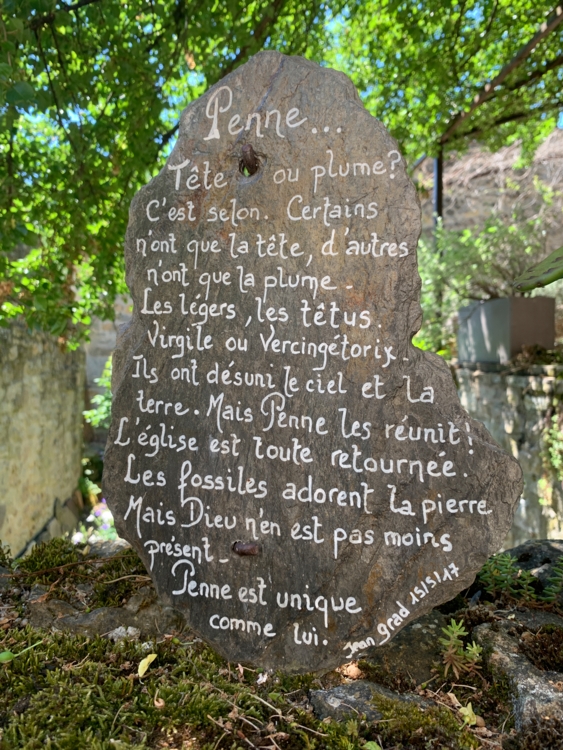 Penne...
Tête ou plume?
C'est selon. Certains
n'ont que la tête, d'autres
n'ont que la plume.
Les légers, les têtus.
Virgile ou Vercingétorix.
Ils ont désuni le ciel et la
terre. Mais Penne les réunit!
L'église est toute retournée.
Les fossiles adorent la pierre
Mais Dieu n'en est pas moins
présent.
Penne est unique
comme lui.
Jean grad 15/5/17